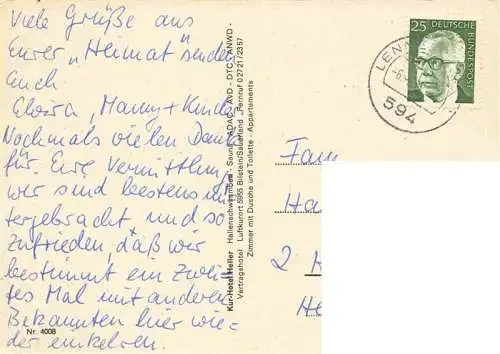 Viele Grüße aus
Eurer „Heimat" senden
Euch
Manny + Kinder
Nochmals vielen Dank
für. Eure Vermittlung,
wir sind bestens un-
tergebracht und so
zufrieden, daß wir
bestimmt ein zwei-
tes Mal mit anderen
Bekannten hier wie-
der einkehren.
Nr. 4008
Kur-Hotel Heller Hallenschwimmbad - Sauna - ADAC - AvD - DTC - ANWD -
Vertragshotel Luftkurort 5955 Bilstein/Sauerland Fernruf 02721/2357
Zimmer mit Dusche und Toilette - Appartements
25 DEUTSCHE
BUNDESPOST
LEN
594
Fam
Ha
2 H
He